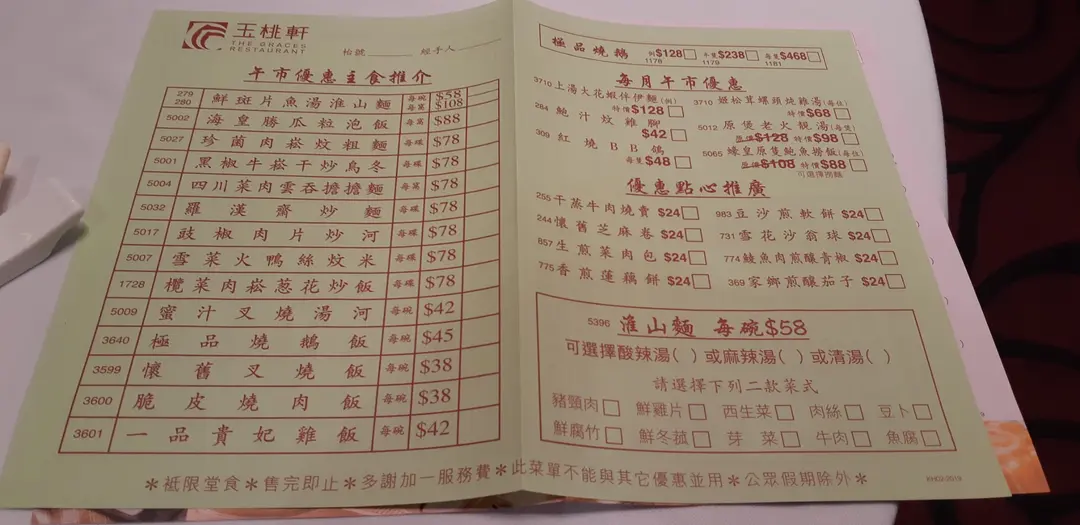 玉桃軒
THE GRACES
RESTAURANT
枱號 經手人
午市優惠主食推介
279 280 鮮斑片魚湯淮山麵 每碗 $58 每窩 $108
5002 海皇勝瓜粒泡飯 每窩 $88
5027 珍菌肉崧炆粗麵 每碟 $78
5001 黑椒牛崧干炒烏冬 每碟 $78
5004 四川菜肉雲吞擔擔麵 每窩 $78
5032 羅漢齋炒麵 每碟 $78
5017 豉椒肉片炒河 每碟 $78
5007 雪菜火鴨絲炆米 每碟 $78
1728 欖菜肉崧蔥花炒飯 每碟 $78
5009 蜜汁叉燒湯河 每碗 $42
3640 極品燒鵝飯 每碗 $45
3599 懷舊叉燒飯 每碗 $38
3600 脆皮燒肉飯 每碗 $38
3601 一品貴妃雞飯 每碗 $42
極品燒鵝 例$128 半隻$238 每隻$468
1178 1179 1181
每月午市優惠
3710 上湯大花蝦伴伊麵(例)
特價$128
284 鮑汁炆雞腳
$42
309 紅燒BB鴿
每隻$48
3710 姬松茸螺頭炖雞湯(每位)
特價$68
5012 原煲老火靚湯(每煲)
原價$128 特價$98
5065 蠔皇原隻鮑魚撈飯(每位)
原價$108 特價$88
可選擇撈麵
優惠點心推廣
255 干蒸牛肉燒賣 $24
983 豆沙煎軟餅 $24
244 懷舊芝麻卷 $24
731 雪花沙翁球 $24
857 生煎菜肉包 $24
774 鯪魚肉煎釀青椒 $24
775 香煎蓮藕餅 $24
369 家鄉煎釀茄子 $24
5396 淮山麵 每碗$58
可選擇酸辣湯( )或麻辣湯( )或清湯( )
請選擇下列二款菜式
豬頸肉 鮮雞片 西生菜 肉絲 豆卜
鮮腐竹 鮮冬菰 芽菜 牛肉 魚腐
*祗限堂食*售完即止*多謝加一服務費*此菜單不能與其它優惠並用*公眾假期除外*